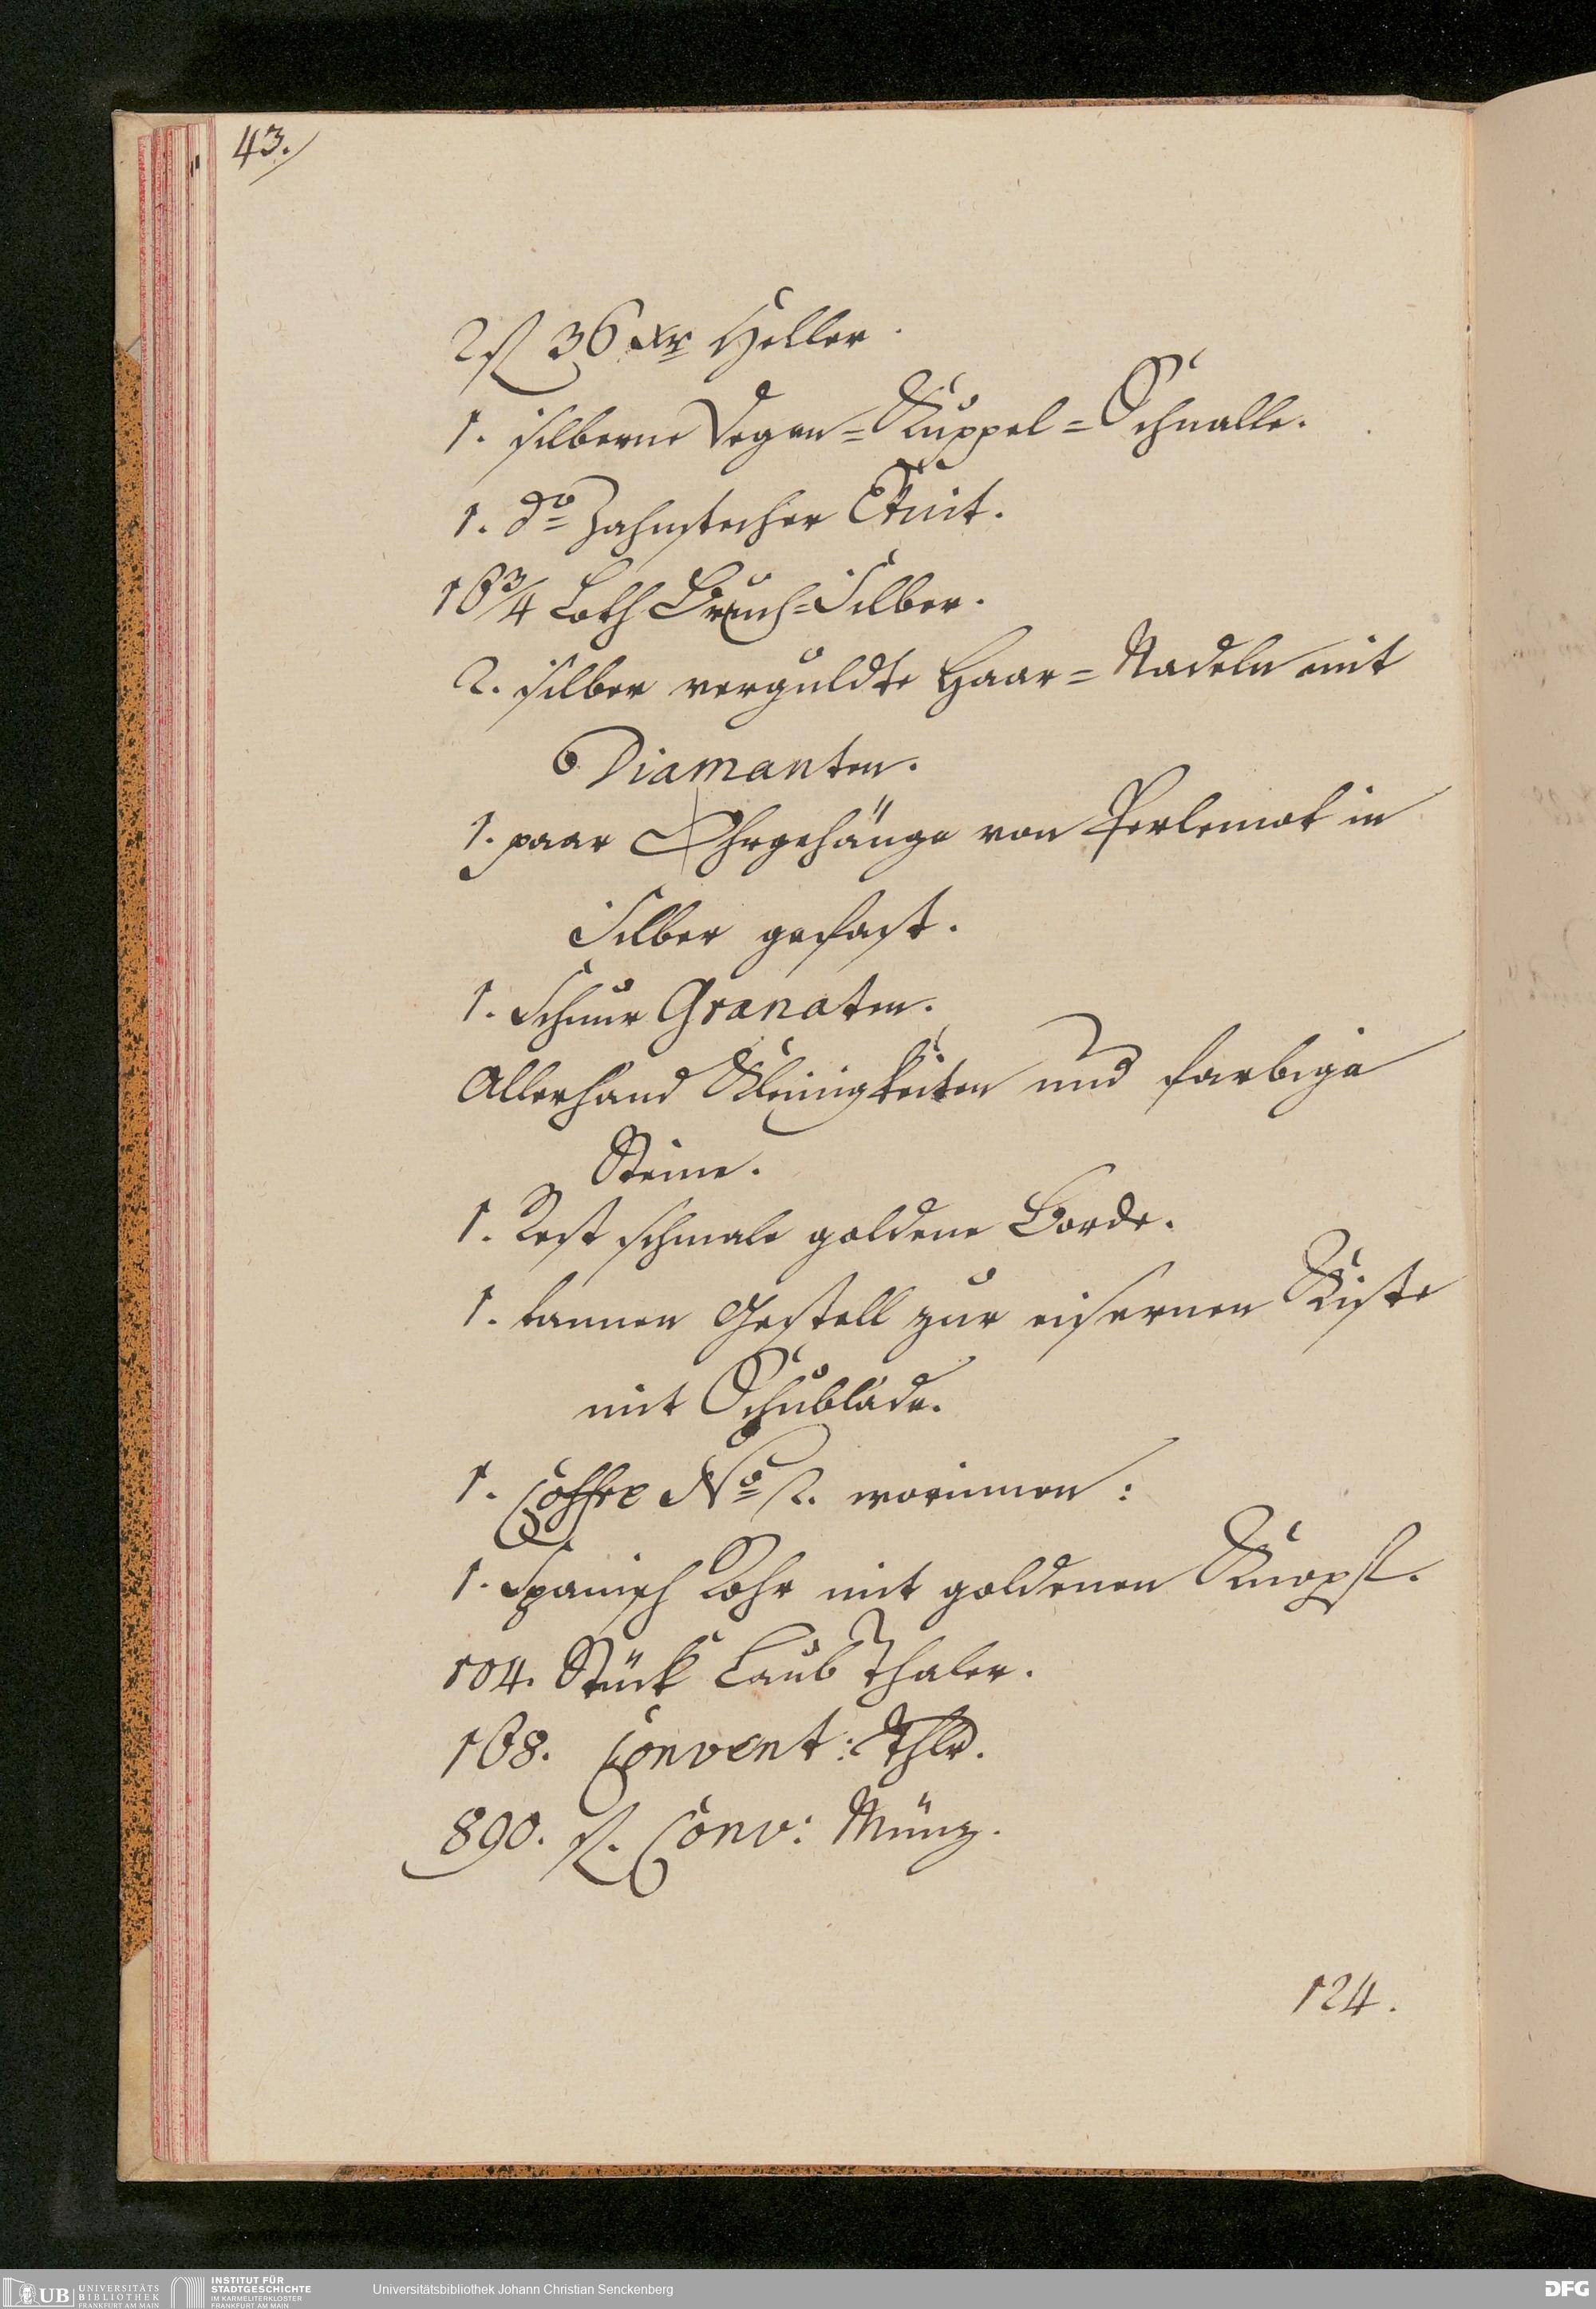 43.
2 fl 36 xr Heller.
1. silberne Degen=Kuppel=Schnalle.
1. do Zahnstecher Etuit.
16 3/4 Loth Bruch=Silber.
2. silber verguldte Haar=Nadeln mit
6 Diamanten.
1. paar Ohrgehänge von Perlemot in
Silber gefast.
1. Schnur Granaten.
Allerhand Kleinigkeiten und farbige
Steine.
1. Rest schmale goldene Borde.
1. tannen Gestell zur eisernen Kiste
mit Schublade.
1. Coffre No 2. worinnen:
1. Spanisch Rohr mit goldenen Knopf.
104. Stück Laub Thaler.
168. Convent: Thlr.
890. fl. Conv: Münz.
124.
UB UNIVERSITÄTS
BIBLIOTHEK
FRANKFURT AM MAIN
INSTITUT FÜR
STADTGESCHICHTE
IM KARMELITERKLOSTER
FRANKFURT AM MAIN
Universitätsbibliothek Johann Christian Senckenberg
DFG